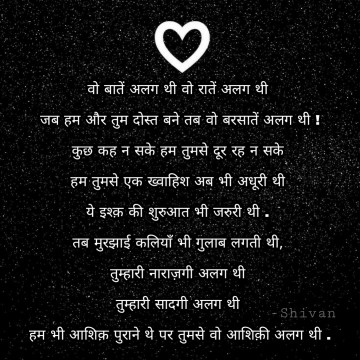 वो बातें अलग थी वो रातें अलग थी
जब हम और तुम दोस्त बने तब वो बरसातें अलग थी !
कुछ कह न सके हम तुमसे दूर रह न सके
हम तुमसे एक ख्वाहिश अब भी अधूरी थी
ये इश्क़ की शुरुआत भी जरुरी थी .
तब मुरझाई कलियाँ भी गुलाब लगती थी,
तुम्हारी नाराज़गी अलग थी
तुम्हारी सादगी अलग थी
-Shivan
हम भी आशिक़ पुराने थे पर तुमसे वो आशिक़ी अलग थी .